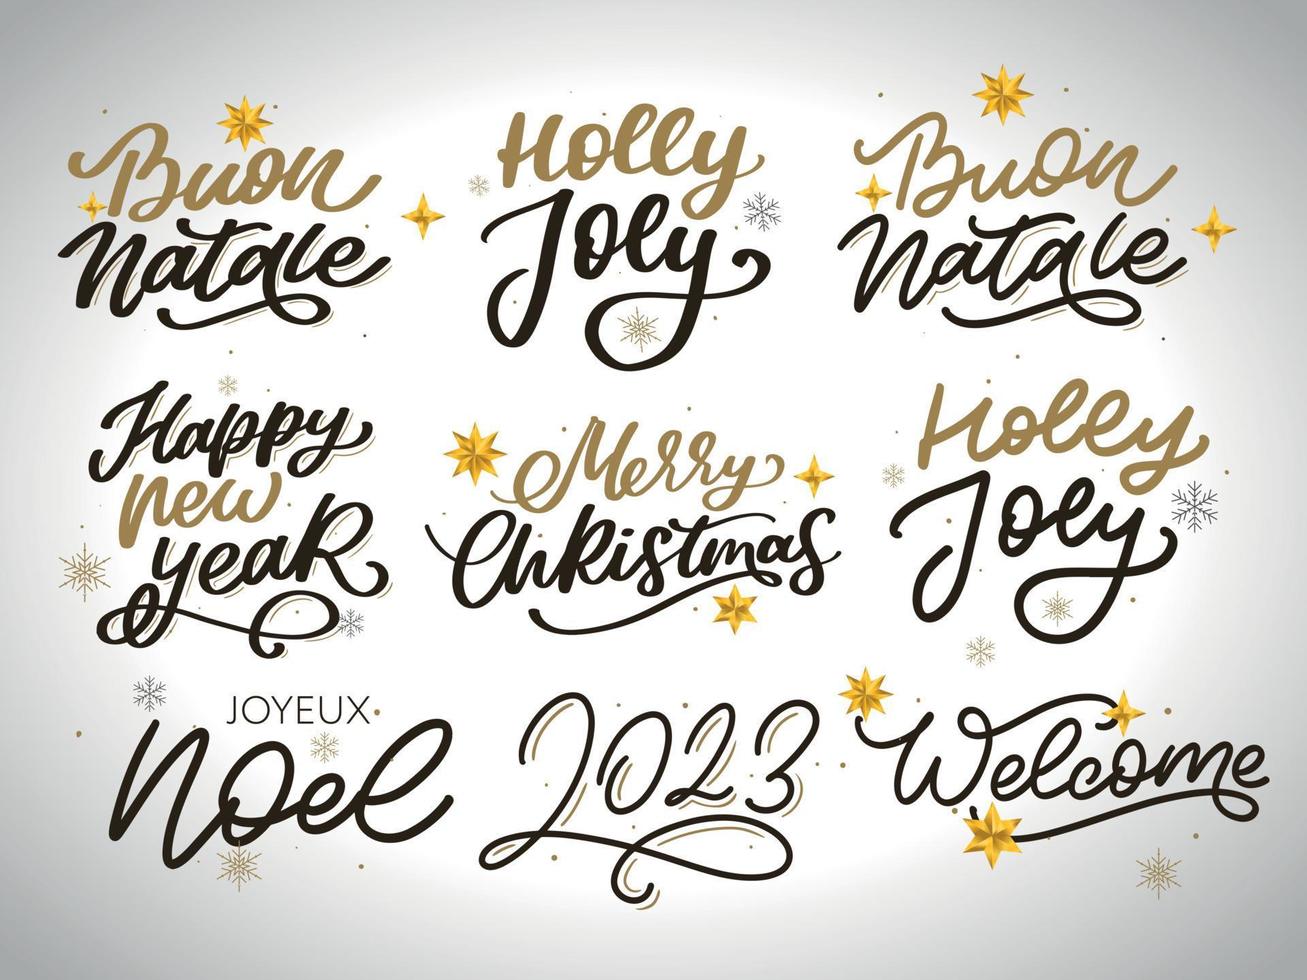 Buon
Natale
Holly
Joly
Buon
Natale
Happy
new
yeaR
Merry
ChRistmas
Holly
Joly
JOYEUX
Noel
2023
Welcome